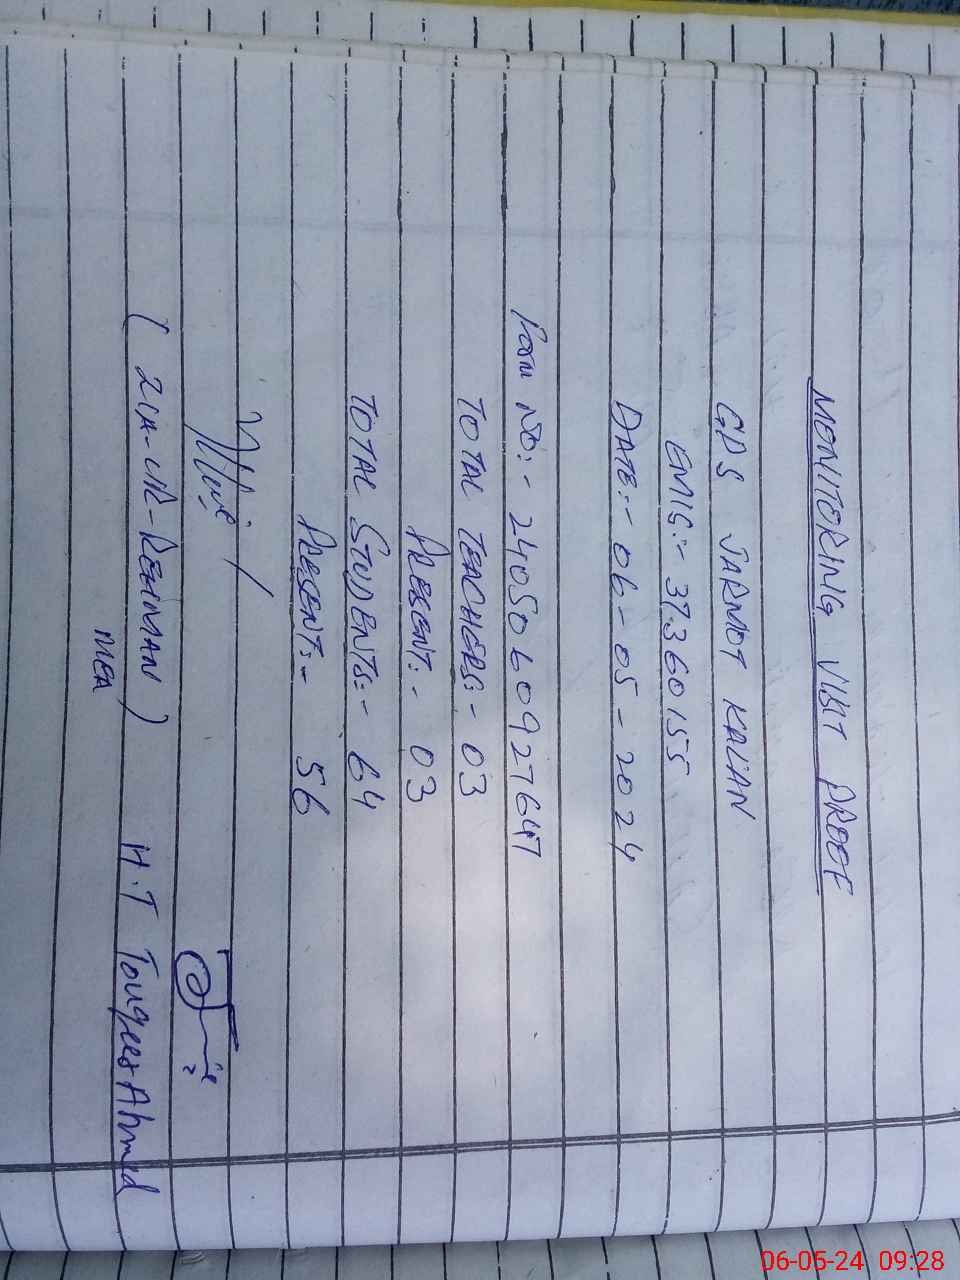 MONITORING VISIT PROOF
GPS SARMOT KALAN
EMIS:- 37360155
DATE:- 06-05-2024
Form No:- 240506092764
TOTAL TEACHERS:- 03
PRESENT:- 03
TOTAL STUDENTS:- 64
PRESENT:- 56
(ZIA-UR-REHMAN)
MEA
H.T Touqeer Ahmed
06-05-24 09:28